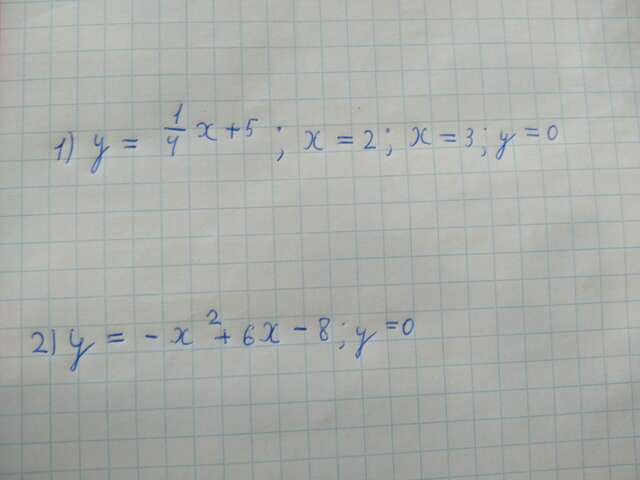 1) y = 1/4 x + 5 ; x = 2 ; x = 3 ; y = 0
2) y = - x² + 6x - 8 ; y = 0